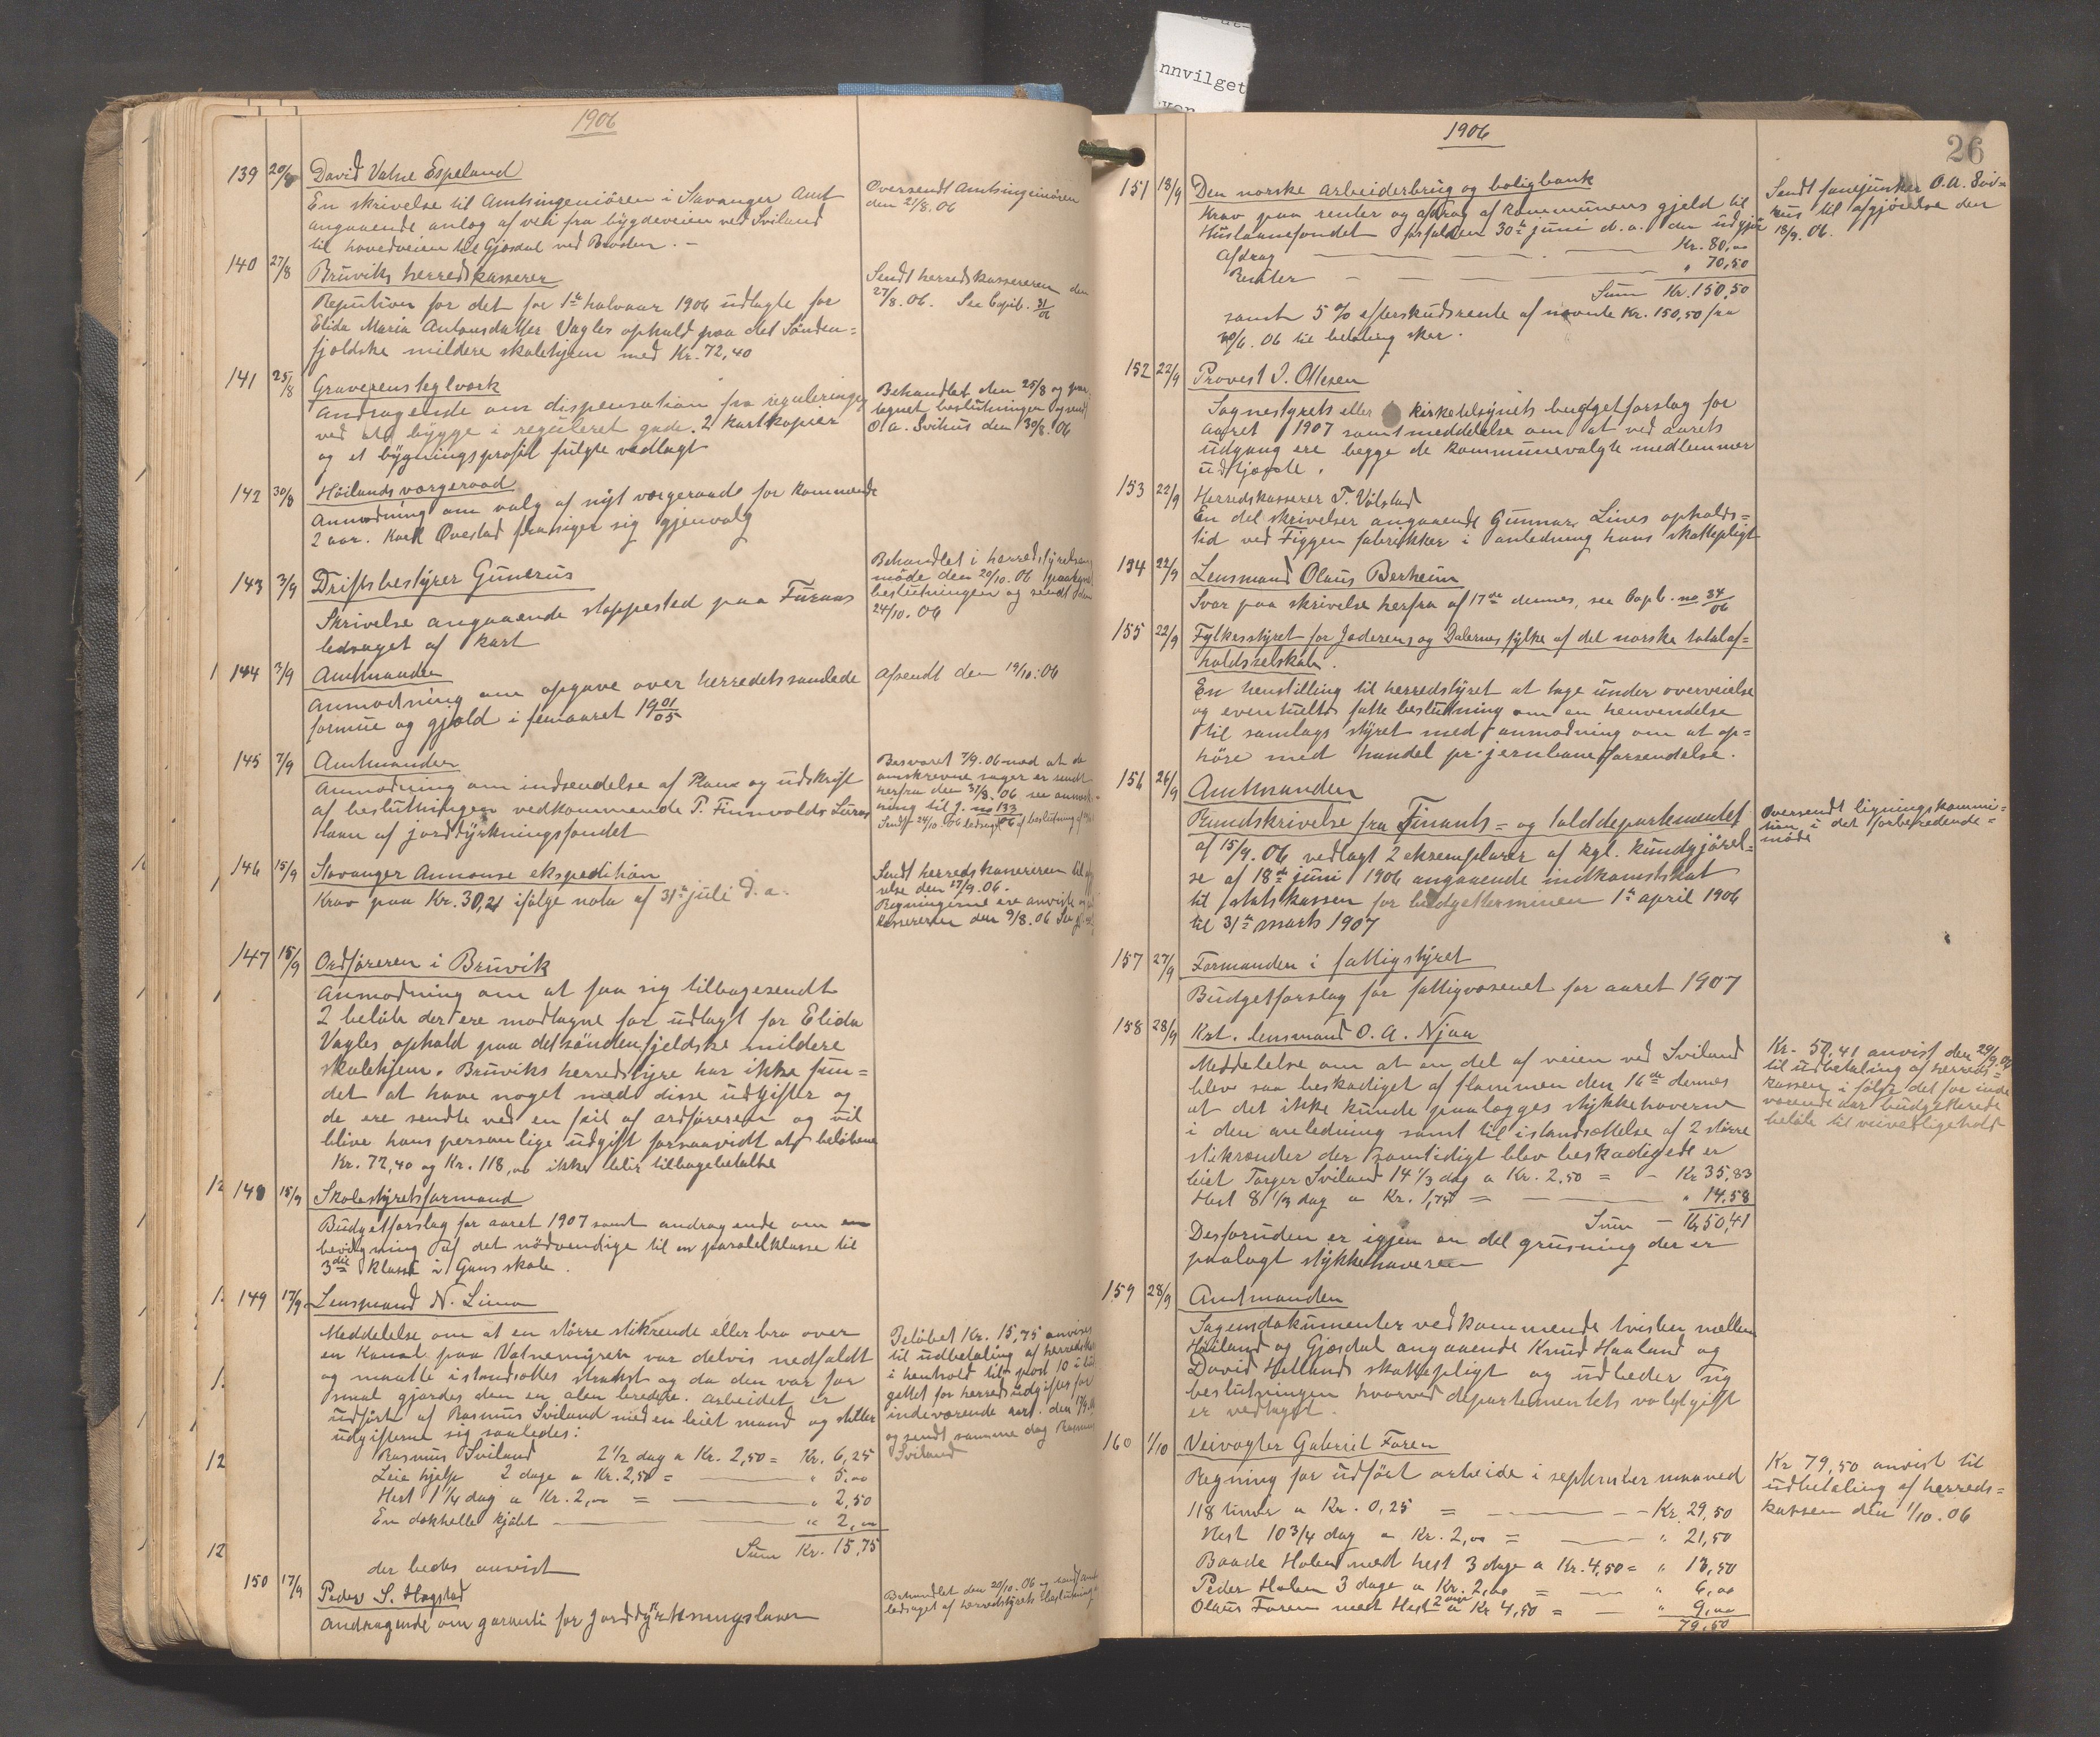 nnvilget
1906
139 20/8 David Vatne Espeland
En skrivelse til Amtsingeniören i Stavanger Amt
angaaende anlæg af vei fra bygdeveien ved Sviland
til hovedveien til Gjesdal ved
Oversendt Amtsingeniören
den 21/8. 06
140 27/8 Bruviks herredskasserer
for det for 1ste halvaar 1906 udlagte for
Elida Maria Antonsdatter Vagles ophold paa det Sönden=
fjeldske mildere skolehjem med Kr. 72,40
Sendt herredskassereren den
27/8. 06. See Copib. 31/06
141 25/8 Graverens teglværk
Andragende om dispensation fra regulering
ved at bygge i reguleret gade. 2 kartkopier
og et bygningsprofil fulgte vedlagt
Behandlet den 25/8 og paa-
tegnet beslutningen og sendt
O. A. Svihus den 30/8. 06
142 30/8 Höilands værgeraad
Anmodning om valg af nyt værgeraad for kommende
2 aar. Karl Overland frasiger sig gjenvalg
143 3/9 Driftsbestyrer Gunerus
Skrivelse angaaende stoppested paa Furaas
ledsaget af kart
Behandlet i herredsstyrets
möde den 20/10. 06
beslutningen og sendt
24/10. 06
144 3/9 Amtmanden
Anmodning om opgave over herredets samlede
formue og gjæld i femaaret 1901/05
Afsendt den 19/10. 06
145 7/9 Amtmanden
Anmodning om indsendelse af Plane og udskrift
af beslutningen vedkommende T. Finnvolds
laan af jorddyrkningsfondet
Besvaret 7/9. 06 med at de
omskrevne sager er sendt
herfra den 31/8. 06 se anmerk-
ning til J. no 133/06
Sendt 24/10. 06 ledsaget af beslutning
146 15/9 Stavanger Annonse ekspedition
Krav paa Kr. 30,21 ifölge nota af 31te juli d. a.
Sendt herredskassereren til
relse den 17/9. 06.
Regningerne ere anviste
kassereren den 9/8. 06
147 15/9 Ordföreren i Bruvik
Anmodning om at faa sig tilbagesendt
2 belöb der ere modtagne for udlagt for Elida
Vagles ophold paa det söndenfjeldske mildere
skolehjem. Bruviks herredstyre har ikke fun=
det at have noget med disse udgifter og
de ere sendte ved en feil af ordföreren og vil
blive hans personlige udgift forsaavidt at belöbene
Kr. 72,40 og Kr. 118,00 ikke blir tilbagebetalte
148 15/9 Skolestyretsformand
Budgetforslag for aaret 1907 samt andragende om en
bevilgning af det nödvendige til en paralelklasse til
3die klasse i Gans skole.
149 17/9 Lensmand N. Lima
Meddelelse om at en större stikrende eller bro over
en Kanal paa Vatnemyren var delvis nedfaldt
og maatte istandsættes strakst og da den var for
smal gjordes den en alen bredere. Arbeidet er
udfört af Rasmus Sviland med en leiet mand og stiller
udgifterne sig saaledes:
Rasmus Sviland 2 1/2 dag a Kr. 2,50 = Kr. 6,25
Leie hjelp 2 dage a Kr. 2,50 = " 5,00
Hest 1 1/4 dag a Kr. 2,00 = " 2,50
En dækhelle kjöbt " 2,00
Sum Kr. 15,75
der bedes anvist
Belöbet Kr. 15,75 anvises
til udbetaling af herredsk
i henhold til post 10 i bud
gettet for herredsudgifter for
indeværende aar. den 17/9. 06
og sendt samme dag Rasmus
Sviland
150 17/9 Peder S. Hogstad
Andragende om garanti for Jorddyrkningslaan
Behandlet den 20/10. 06 og sendt amt
ledsaget af herredsstyrets beslutning
1906
26
151 18/9 Den norske arbeiderbrug og boligbank
Krav paa renter og afdrag af kommunens gjeld til
Huslaanefondet forfalden 30te juni d. a. der udgjör
Afdrag Kr. 80,00
Renter " 70,50
Sum Kr. 150,50
samt 5 % efterskudsrente af nævnte Kr. 150,50 fra
30/6. 06 til betaling sker.
Sendt fanejunker O. A. Svi=
hus til afgjörelse den
18/9. 06.
152 22/9 Provest I. Ollesen
Sognestyrets eller kirketilsynets budgetforslag for
aaret 1907 samt meddelelse om at ved aarets
udgang ere begge de kommunevalgte medlemmer
udtjente.
153 22/9 Herredskasserer T. Välstad
En del skrivelser angaaende Gunnar Lines opholds=
tid ved Figgen fabrikker i anledning hans skattepligt
154 22/9 Lensmand Olaus Berheim
Svar paa skrivelse herfra af 17de dennes, see Copb. no 34/06
155 22/9 Fylkesstyret for Jæderens og Dalernes fylke af det norske totalaf=
holdsselskab.
En henstilling til herredstyret at tage under overveielse
og eventuelt fatte beslutning om en henvendelse
til samlags styret med anmodning om at op=
höre med handel pr. jernbaneforsendelse.
156 26/9 Amtmanden
Rundskrivelse fra Finants= og tolddepartementet
af 15/9. 06 vedlagt 2 eksemplarer af kgl. kundgjörel=
se af 18de juni 1906 angaaende indkomstskat
til statskassen for budgetterminen 1te april 1906
til 31te marts 1907
Oversendt ligningskommi=
sion i det forberedende=
möde
157 27/9 Formanden i fattigstyret
Budgetforslag for fattigvæsenet for aaret 1907
158 28/9 Kst. lensmand O. A. Njaa
Meddelelse om at en del af veien ved Sviland
blev saa beskadiget af flommen den 16de dennes
at det ikke kunde paalægges stykkehaverne
i den anledning samt til istandsættelse af 2 större
stikrender der samtidigt blev beskadigede er
leiet Torger Sviland 14 1/3 dag a Kr. 2,50 = - Kr 35,83
Hest 8 1/3 dag a Kr. 1,75 = " 14,58
Sum - Kr 50,41
Desforuden er igjen en del grusning der er
paalagt stykkehaveren
Kr. 50,41 anvist den 29/9. 06
til udbetaling af herreds=
kassen i fölge det for inde
værende aar budgetterede
belöb til veivedligehold
159 28/9 Amtmanden
Sagensdokumenter vedkommende tvisten mellem
Höiland og Gjesdal angaaende Knud Haaland og
David Hetlands skattepligt og udbeder sig
beslutningen hvorved departementets valgtgift
er vedtaget.
160 1/10 Veivogter Gabriel Foren
Regning for udfört arbeide i september maaned
118 timer a Kr. 0,25 = Kr. 29,50
Hest 10 3/4 dag a Kr. 2,00 = " 21,50
Baade Holen med hest 3 dage a Kr. 4,50 = " 13,50
Peder Holen 3 dage a Kr. 2,00 = " 6,00
Olaus Foren med Hest 2 dage a Kr 4,50 = " 9,00
79,50
Kr 79,50 anvist til
udbetaling af herreds=
kassen den 1/10. 06